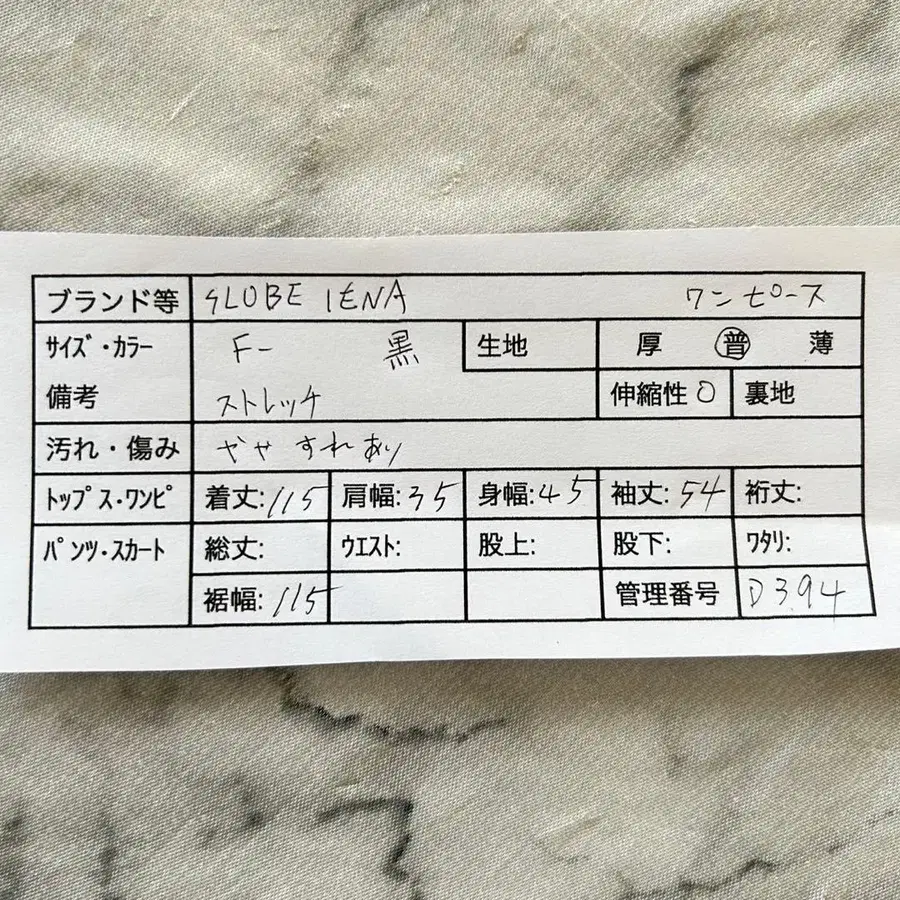 ブランド等 SLOBE IENA ワンピース
サイズ・カラー F- 黒 生地 厚 普 薄
備考 ストレッチ 伸縮性 ○ 裏地
汚れ・傷み ややすれあり
トップス・ワンピ 着丈:115 肩幅:35 身幅:45 袖丈:54 裄丈:
パンツ・スカート 総丈: ウエスト: 股上: 股下: ワタリ:
裾幅:115 管理番号 D394